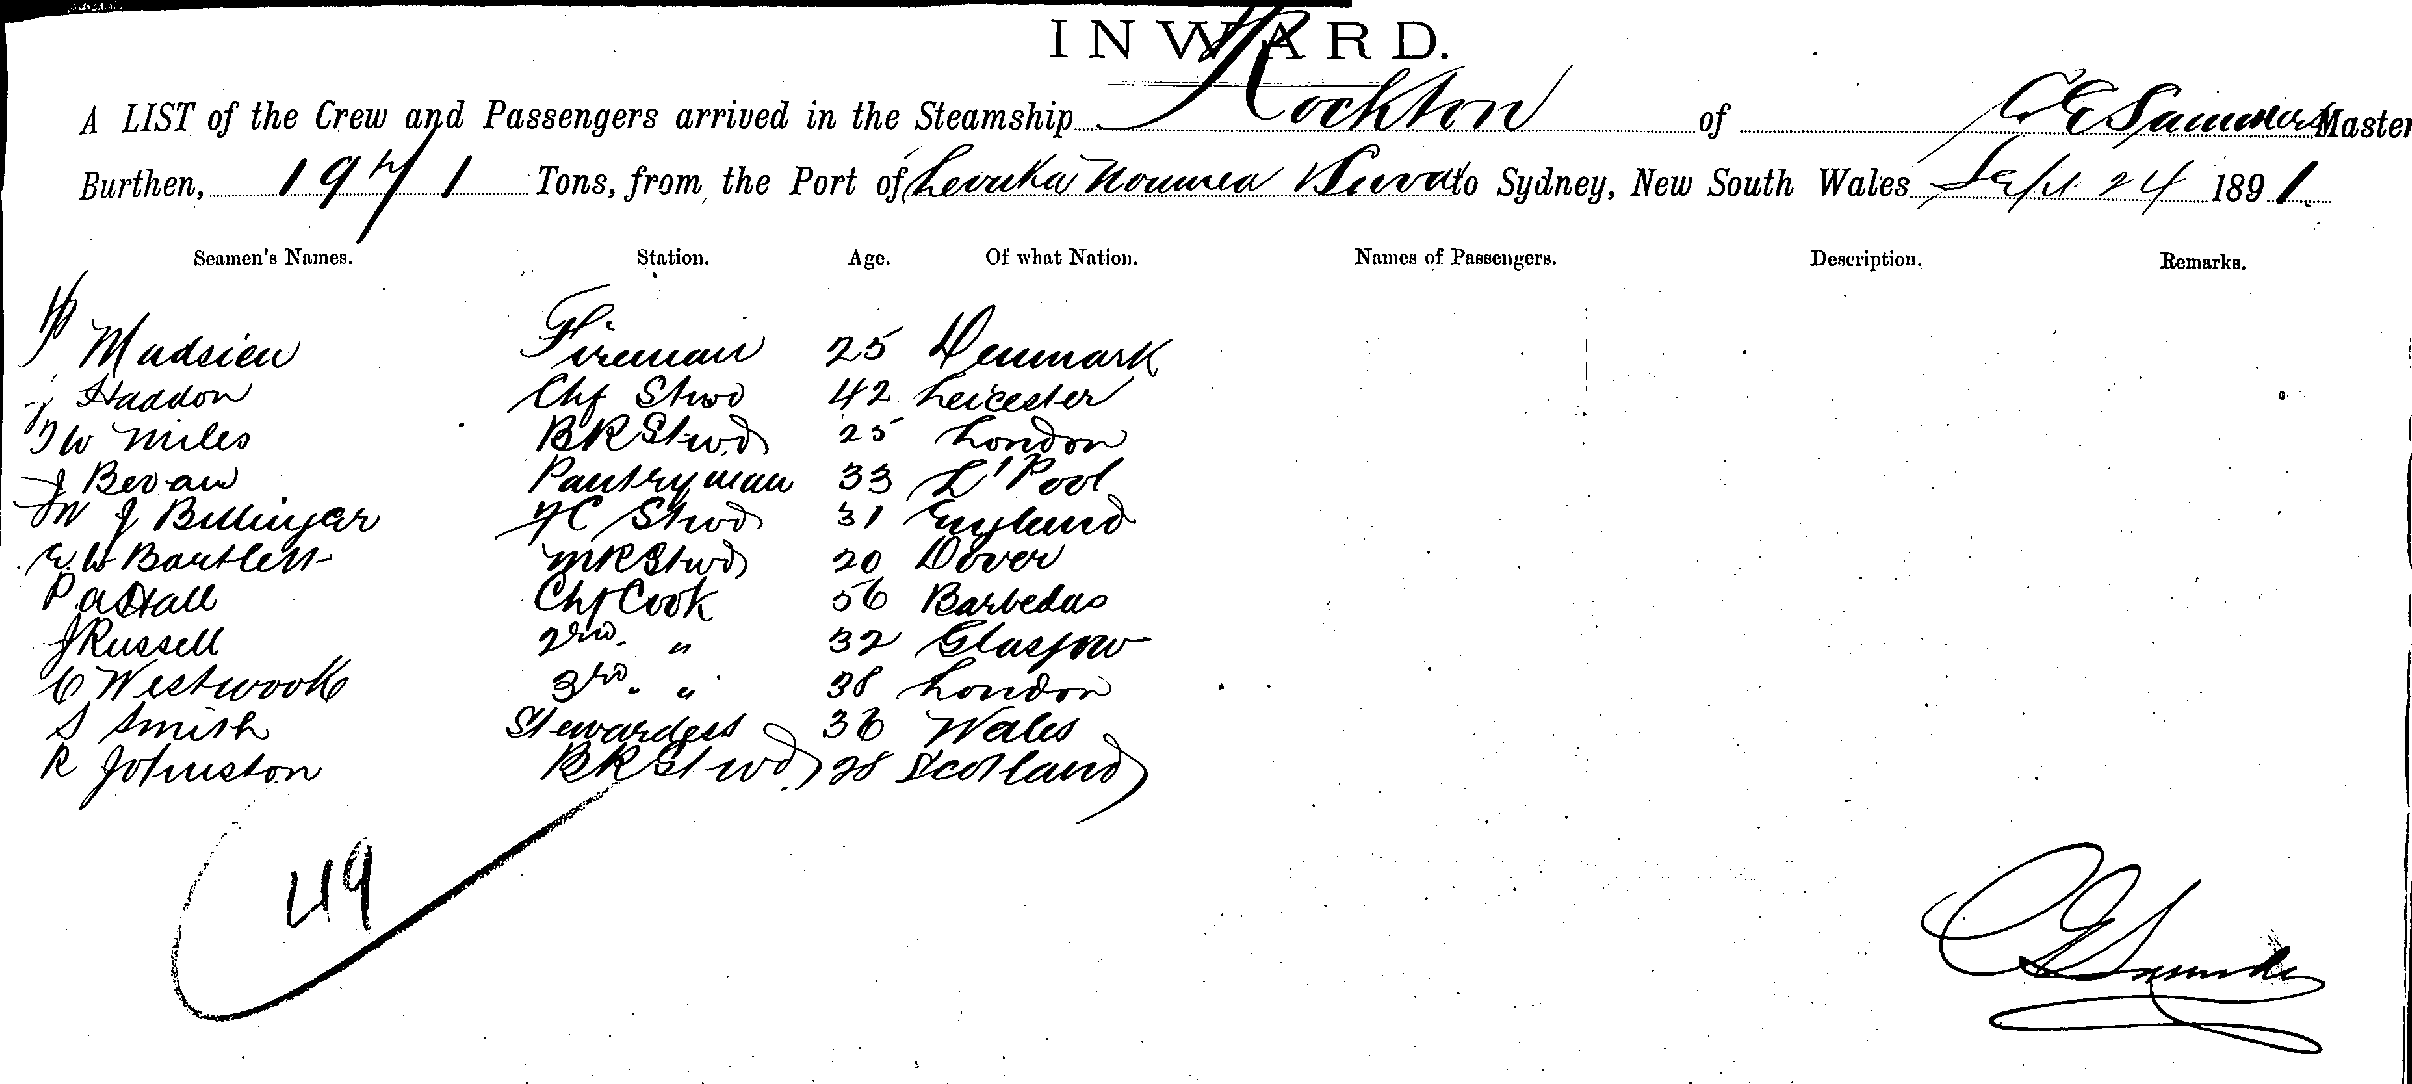 INWARD.
A LIST of the Crew and Passengers arrived in the Steamship Rockton of C E Saunders Master
Burthen, 1971 Tons, from the Port of Levuka Noumea Suva to Sydney, New South Wales Sept. 24 1891.
Seamen's Names. Station. Age. Of what Nation. Names of Passengers. Description. Remarks.
Madsien Fireman 25 Denmark
Haddon Chf Stwd 42 Leicester
W Miles BR Stwd 25 London
J Bevan Pantryman 33 L'Pool
J Bellinger Stwd 31 England
E. W Bartlett MR Stwd 20 Dover
P a Hall Chf Cook 56 Barbedas
J Russell 2nd. " 32 Glasgow
C Westwook 3rd. " 38 London
S Smith Stewardess 36 Wales
R Johnston BR Stwd 28 Scotland
49
C E Saunders